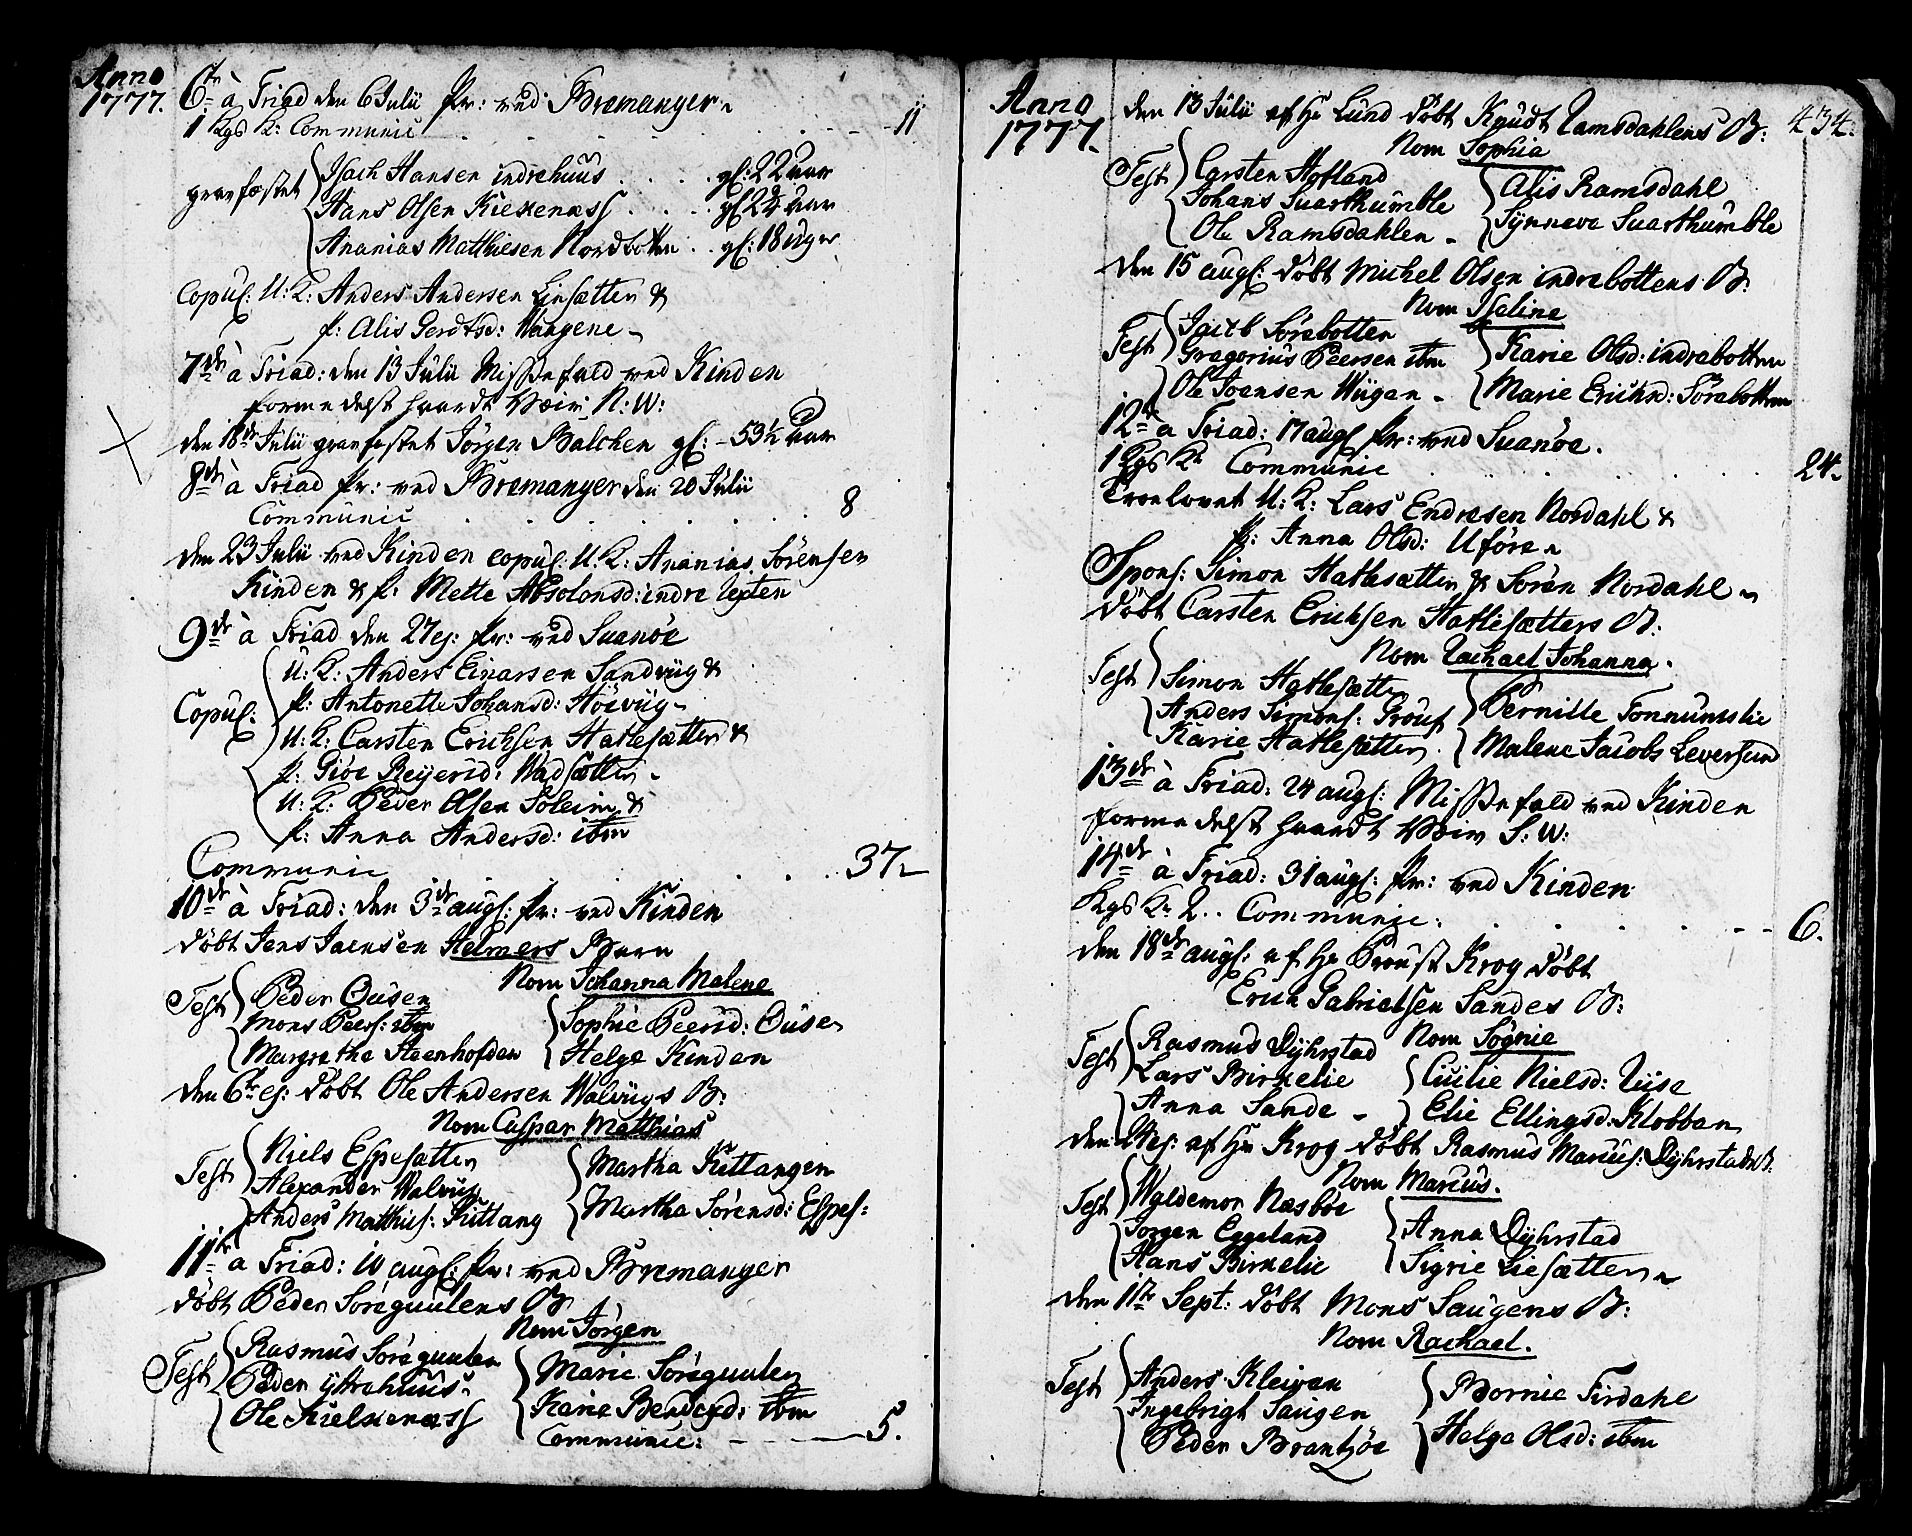 Anno
1777.
6te à Triad den 6 Julii Pr: ved Bremanger
1 Kgs K: Communic . . . 11
gravfæstet
Isach Hansen indrehuus . . . . gl: 22 aar
Hans Olsen Kiexenæss . . . gl 22 aar
Ananias Matthiesen Nordbotten . . gl: 18 uger
Copul: U: K: Anders Andersen Liesætter &
p: Alis Gerdtsd: Waagene
7de à Triad: den 13 Julii Missefald ved Kinden
formedelst haardt Veir N: W:
den 18de Julii gravfæstet Jörgen Balchen gl: 53½ aar
8de à Triad Pr: ved Bremanger den 20 Julii
Communic . . . . . . 8
den 23 Julii ved Kinden copul: U: K: Ananias Sörensen
Kinden & p: Mette Absolonsd: indre
9de à Triad den 27 ej: Pr: ved Suanöe
Copul:
U: K: Anders Einarsen Sandvüg &
p: Antonette Johansd: Höivüg
U: K: Carsten Erichsen Hatlesætter &
p: Giöe Reyersd: Wadsætter
U: K: Peder Olsen Soleim &
p: Anna Andersd: ibm
Communic . . . . 37
10de à Triad: den 3de augl: Pr: ved Kinden
döbt Jens Jaensen Helmers Barn
Nom Johanna Malene
Test
Peder Ousen
Mons Peers: ibm
Margrethe Steenhofden
Sophie Peersd: Ousen
Helge Kinden
den 6te ej: döbt Ole Andersen Walvügs B:
Nom Caspar Matthias
Test
Niels Espesætter
Alexander Walvüg
Anders Matthies: Kittang
Martha Kittangen
Martha Sörensd: Espes:
11te à Triad: 10 augl: Pr: ved Bremanger
döbt Peder Söreguulens B
Nom Jörgen
Test
Rasmus Söreguulen
Peder ijttrehuus
Ole Kielxenæss
Marie Söreguulen
Karie Bendixd: ibm
Communic: 5.
Anno
1777.
434.
den 13 Julii af Hr Lund döbt Knudt Ramsdahlens B:
Nom Sophia
Test
Carsten Hofland
Johans Suarthumble
Ole Ramsdahlen
Alis Ramsdahl
Synneve Suarthumble
den 15 augl: döbt Michel Olsen indrebottens B:
Nom Iseline
Test
Jacob Sörebotten
Gregorius Peersen ibm
Ole Joensen Wügen
Karie Olsd: indrebotten
Marie Erichsd: Sörebotten
12te à Triad: 17 augl Pr: ved Suanöe.
1 Kgs K Communic . . . 24.
Troelovet U: K: Lars Endresen Nordahl &
p: Anna Olsd: Uföre
Spons: Simon Hatlesætter & Sören Nordahl
döbt Carsten Erichsen Hatlesætters B:
Nom Rachael Johanna.
Test
Simon Hatlesætter
Anders Simons: Grouf
Karie Hatlesætter
Pernille Tonnumslie
Malene Jacobs Leversund
13de à Triad: 24 augl: Missefald ved Kinden
formedelst haardt Veir S: W:
14de à Triad: 31 augl: Pr: ved Kinden
Kgs K: 2. . Communic: . . . 6.
den 18de augl: af Hr Proust Krog döbt
Erich Gabrielsen Sandes B:
Nom Sögnie
Test
Rasmus Dyhrstad
Lars Birkelie
Anna Sande
Cicilie Nielsd: Riise
Elie Ellingsd: Klobben
den ej: af Hr Krog döbt Rasmus Marius: Dyhrstads B.
Nom Marius.
Test
Waldemor Næsböe
Jorgen Eggeland
Hans Birkelie
Anna Dyhrstad
Sigrie Liesætter
den 11te Sept: döbt Mons Saugens B:
Nom Rachael.
Test
Anders Kleiven
Ingebrigt Saugen
Peder Brantzöe
Bornie Firdahl
Helge Olsd: ibm